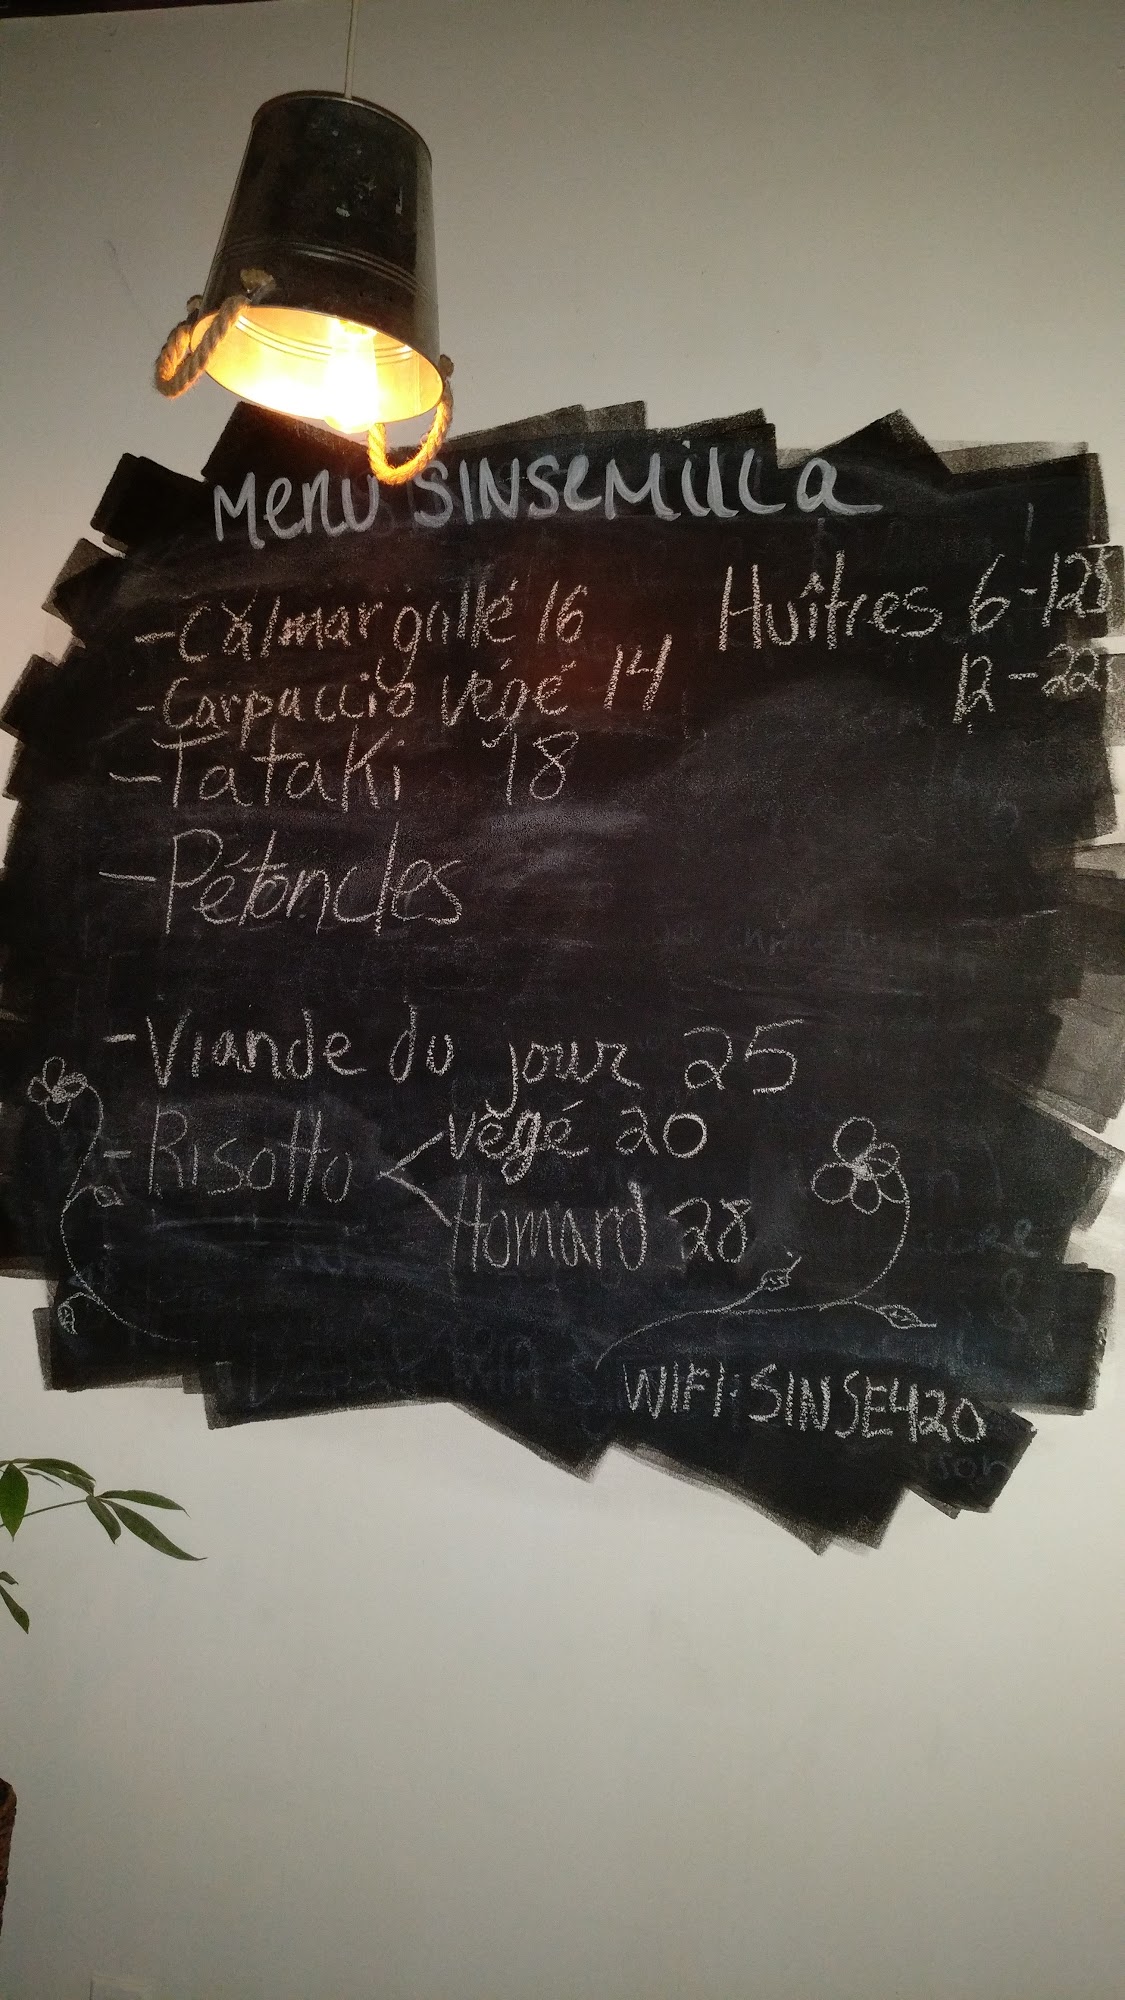 Menu SINSEMILLA
-Calmar grillé 16
-Carpaccio végé 14
-Tataki 18
-Pétoncles
Huîtres 6-12$
12-22$
-Viande du jour 25
-Risotto < végé 20
Homard 28
WIFI: SINSE420